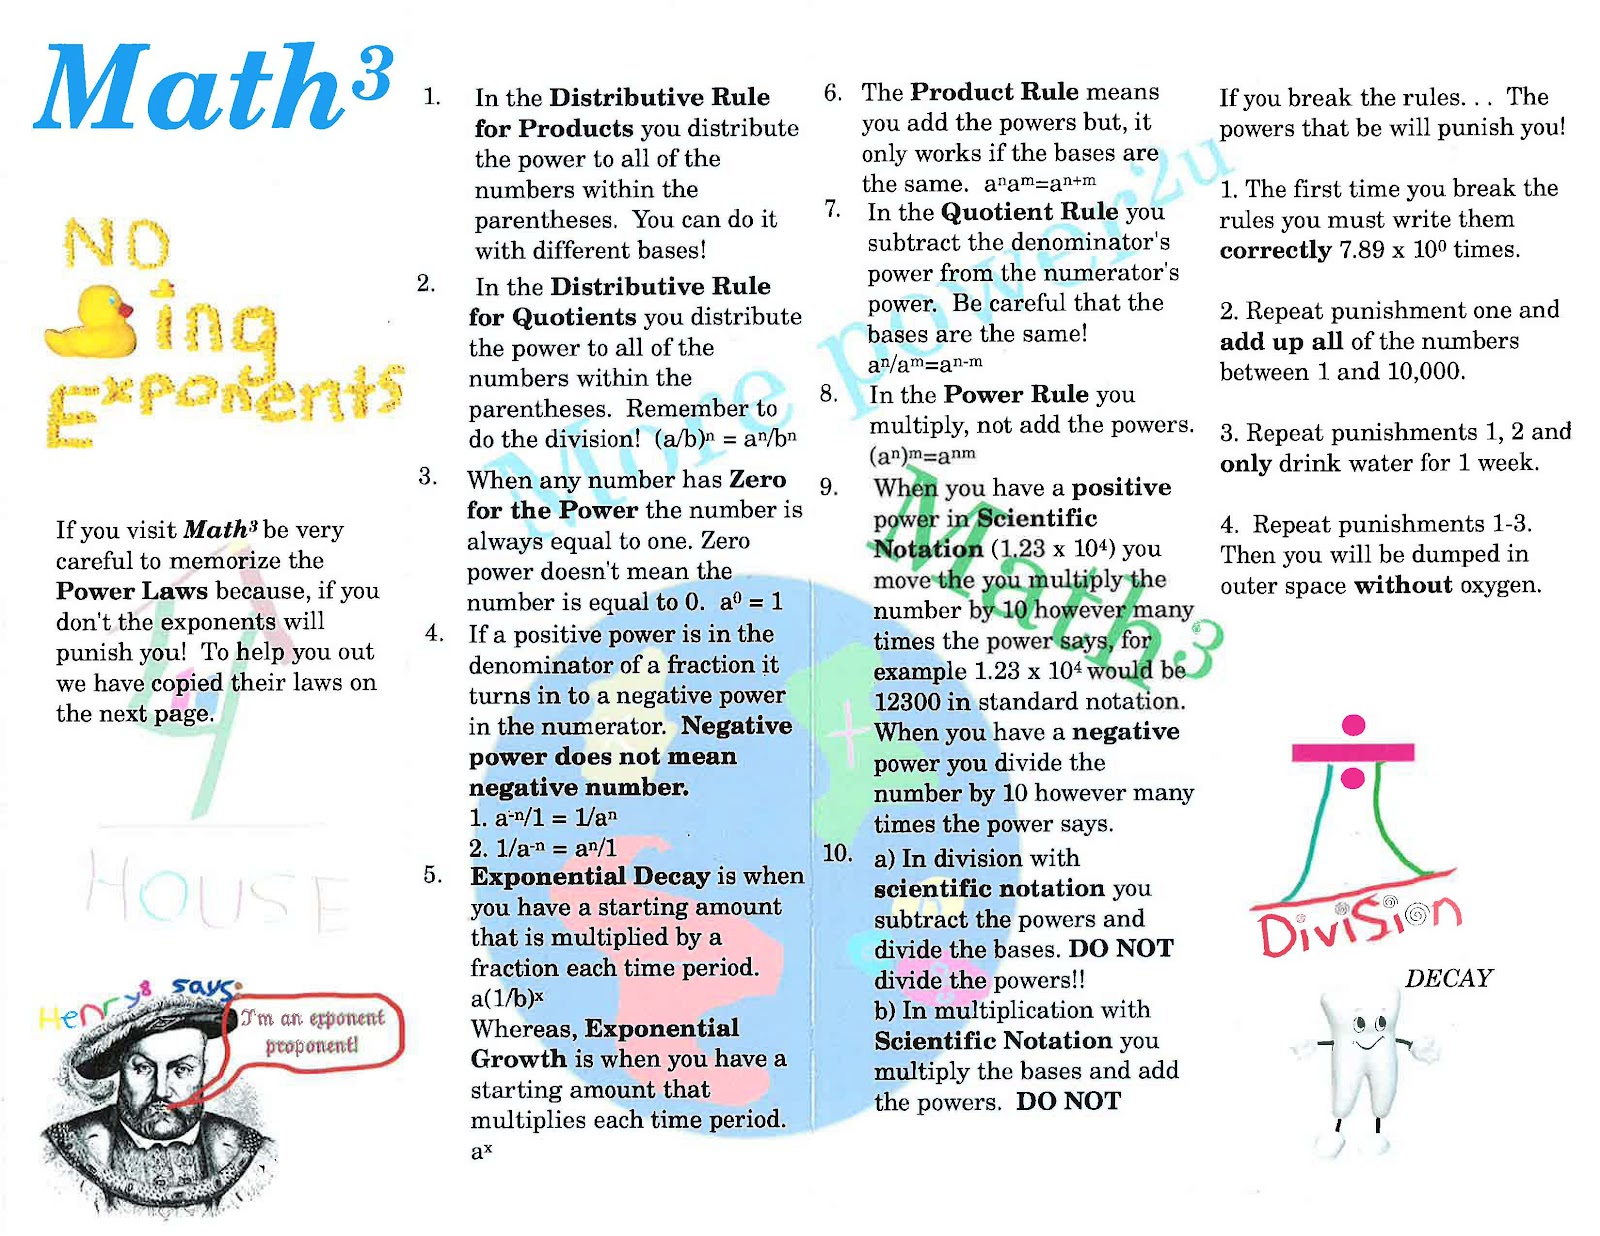 Math³
NO
ing
Exponents
If you visit Math³ be very
careful to memorize the
Power Laws because, if you
don't the exponents will
punish you!  To help you out
we have copied their laws on
the next page.
HOUSE
Henry⁸ says:
I'm an exponent
proponent!
1. In the Distributive Rule
for Products you distribute
the power to all of the
numbers within the
parentheses.  You can do it
with different bases!
2. In the Distributive Rule
for Quotients you distribute
the power to all of the
numbers within the
parentheses.  Remember to
do the division!  (a/b)ⁿ = aⁿ/bⁿ
3. When any number has Zero
for the Power the number is
always equal to one. Zero
power doesn't mean the
number is equal to 0.  a⁰ = 1
4. If a positive power is in the
denominator of a fraction it
turns in to a negative power
in the numerator.  Negative
power does not mean
negative number.
1. a⁻ⁿ/1 = 1/aⁿ
2. 1/a⁻ⁿ = aⁿ/1
5. Exponential Decay is when
you have a starting amount
that is multiplied by a
fraction each time period.
a(1/b)ˣ
Whereas, Exponential
Growth is when you have a
starting amount that
multiplies each time period.
aˣ
6. The Product Rule means
you add the powers but, it
only works if the bases are
the same.  aⁿaᵐ=aⁿ⁺ᵐ
7. In the Quotient Rule you
subtract the denominator's
power from the numerator's
power.  Be careful that the
bases are the same!
aⁿ/aᵐ=aⁿ⁻ᵐ
8. In the Power Rule you
multiply, not add the powers.
(aⁿ)ᵐ=aⁿᵐ
9. When you have a positive
power in Scientific
Notation (1.23 x 10⁴) you
move the you multiply the
number by 10 however many
times the power says, for
example 1.23 x 10⁴ would be
12300 in standard notation.
When you have a negative
power you divide the
number by 10 however many
times the power says.
10. a) In division with
scientific notation you
subtract the powers and
divide the bases. DO NOT
divide the powers!!
b) In multiplication with
Scientific Notation you
multiply the bases and add
the powers.  DO NOT
More power²u
Math³
If you break the rules. . .  The
powers that be will punish you!
1. The first time you break the
rules you must write them
correctly 7.89 x 10⁰ times.
2. Repeat punishment one and
add up all of the numbers
between 1 and 10,000.
3. Repeat punishments 1, 2 and
only drink water for 1 week.
4.  Repeat punishments 1-3.
Then you will be dumped in
outer space without oxygen.
DiviSion
DECAY